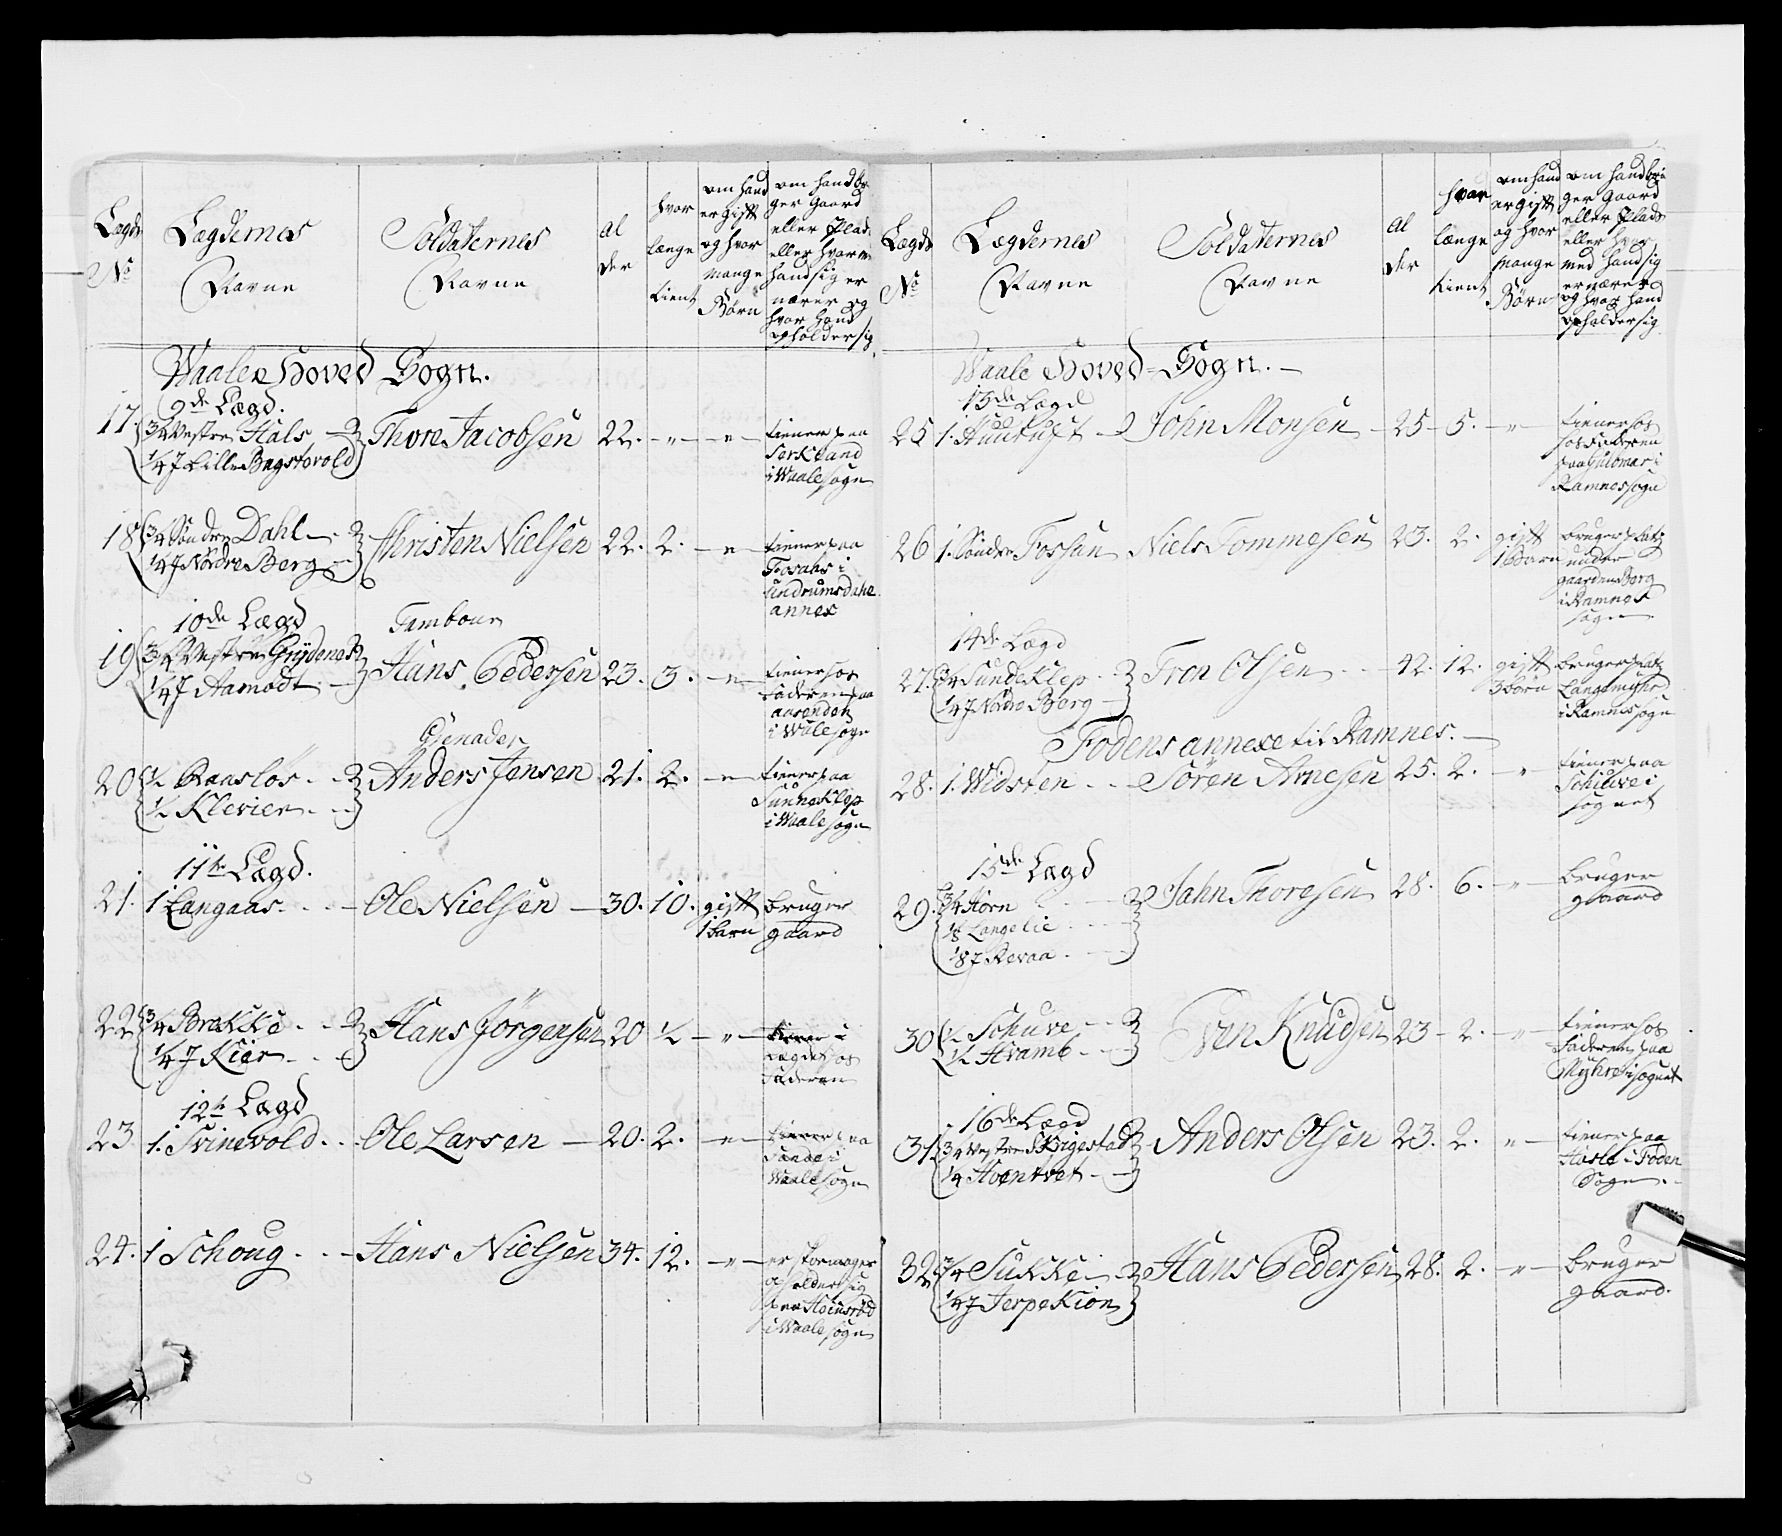 Lægds No
Lægdernes Navne
Soldaternes Navne
Al der
hvor længe tient
om hand er gift og hvor mange Børn
om hand bruger gaard eller Plads eller hvor med hand sig ernærer og hvor hand opholder sig
Waale Hoved Sogn.
9de Lægd.
17. 3/4 Vestre Hals Thore Jacobsen 22. - " - " - tiener paa
1/4 J Lille i Waale sogn
18 3/4 Søndre Dahl Christen Nielsen 22. 2. - " - tiener paa
1/4 J Nordre Berg i Undrumsdahl annex
10de Lægd Tambour
19 3/4 Vestre Hans Pedersen 23. 3. - " - tiener hos
1/4 J Aamodt faderen paa
i Wale sogn
Grenader
20 1/2 Raasløs Anders Jensen 21. 2. - " - tiener paa
1/2 Klevier Sunne Klep
i Waale sogn
11te Lægd.
21. 1 Langaas Ole Nielsen 30. 10. gift bruger
1 barn gaard
22 3/4 Brekke Hans Jörgensen 20 1/2 - " - tiener i
1/4 J Kier Lægdet hos
Faderen
12te Lægd
23 1. Svinevold Ole Larsen 20. 2. - " - tiener paa
Sande i
Waale sogn
24. 1 Schoug Hans Nielsen 34. 12. - " - er
opholder sig
paa
i Waale sogn
Lægds No
Lægdernes Navne
Soldaternes Navne
Al der
hvor længe tient
om hand er gift og hvor mange Börn
om hand bruger gaard eller Plads eller hvor med hand sig ernærer og hvor hand opholder sig
Waale Hoved-Sogn.
13de Lægd
25 1. John Monsen 25 5. - " - tiener hos
faderen
paa i
Ramnes sogn
26 1. Søndre Fossan Niels Tommesen 23. 2. gift bruger platz
1 Barn under
gaarden Berg
i Ramnes
sogn
14de Lægd
27. 3/4 Sunde Klep Tron Olsen 42. 12. gift bruger platz
1/4 J Nordre Berg 3 börn
i Ramnes sogn
Fodens annexe til Ramnes.
28. 1. Widsten Sören Arnesen 25. 2. - " - tiener paa
Schiuve i
sognet
15de Lægd
29. 3/4 Horn Jahn Thoresen 28. 6. - " - bruger
1/8 Langelie gaard
1/8 J Revaa
30 1/2 Schuve Sven Knudsen 23 2. - " - tiener hos
1/2 Hvamb Faderen paa
Myhre i sognet
16de Lægd
31. 3/4 Vestre Anders Olsen 23. 2. " - tiener paa
1/4 Hasle i Foden
Sogn.
32 3/4 Sukke Hans Pedersen 28. 2. - " - bruger
1/4 J Jerpekion gaard.